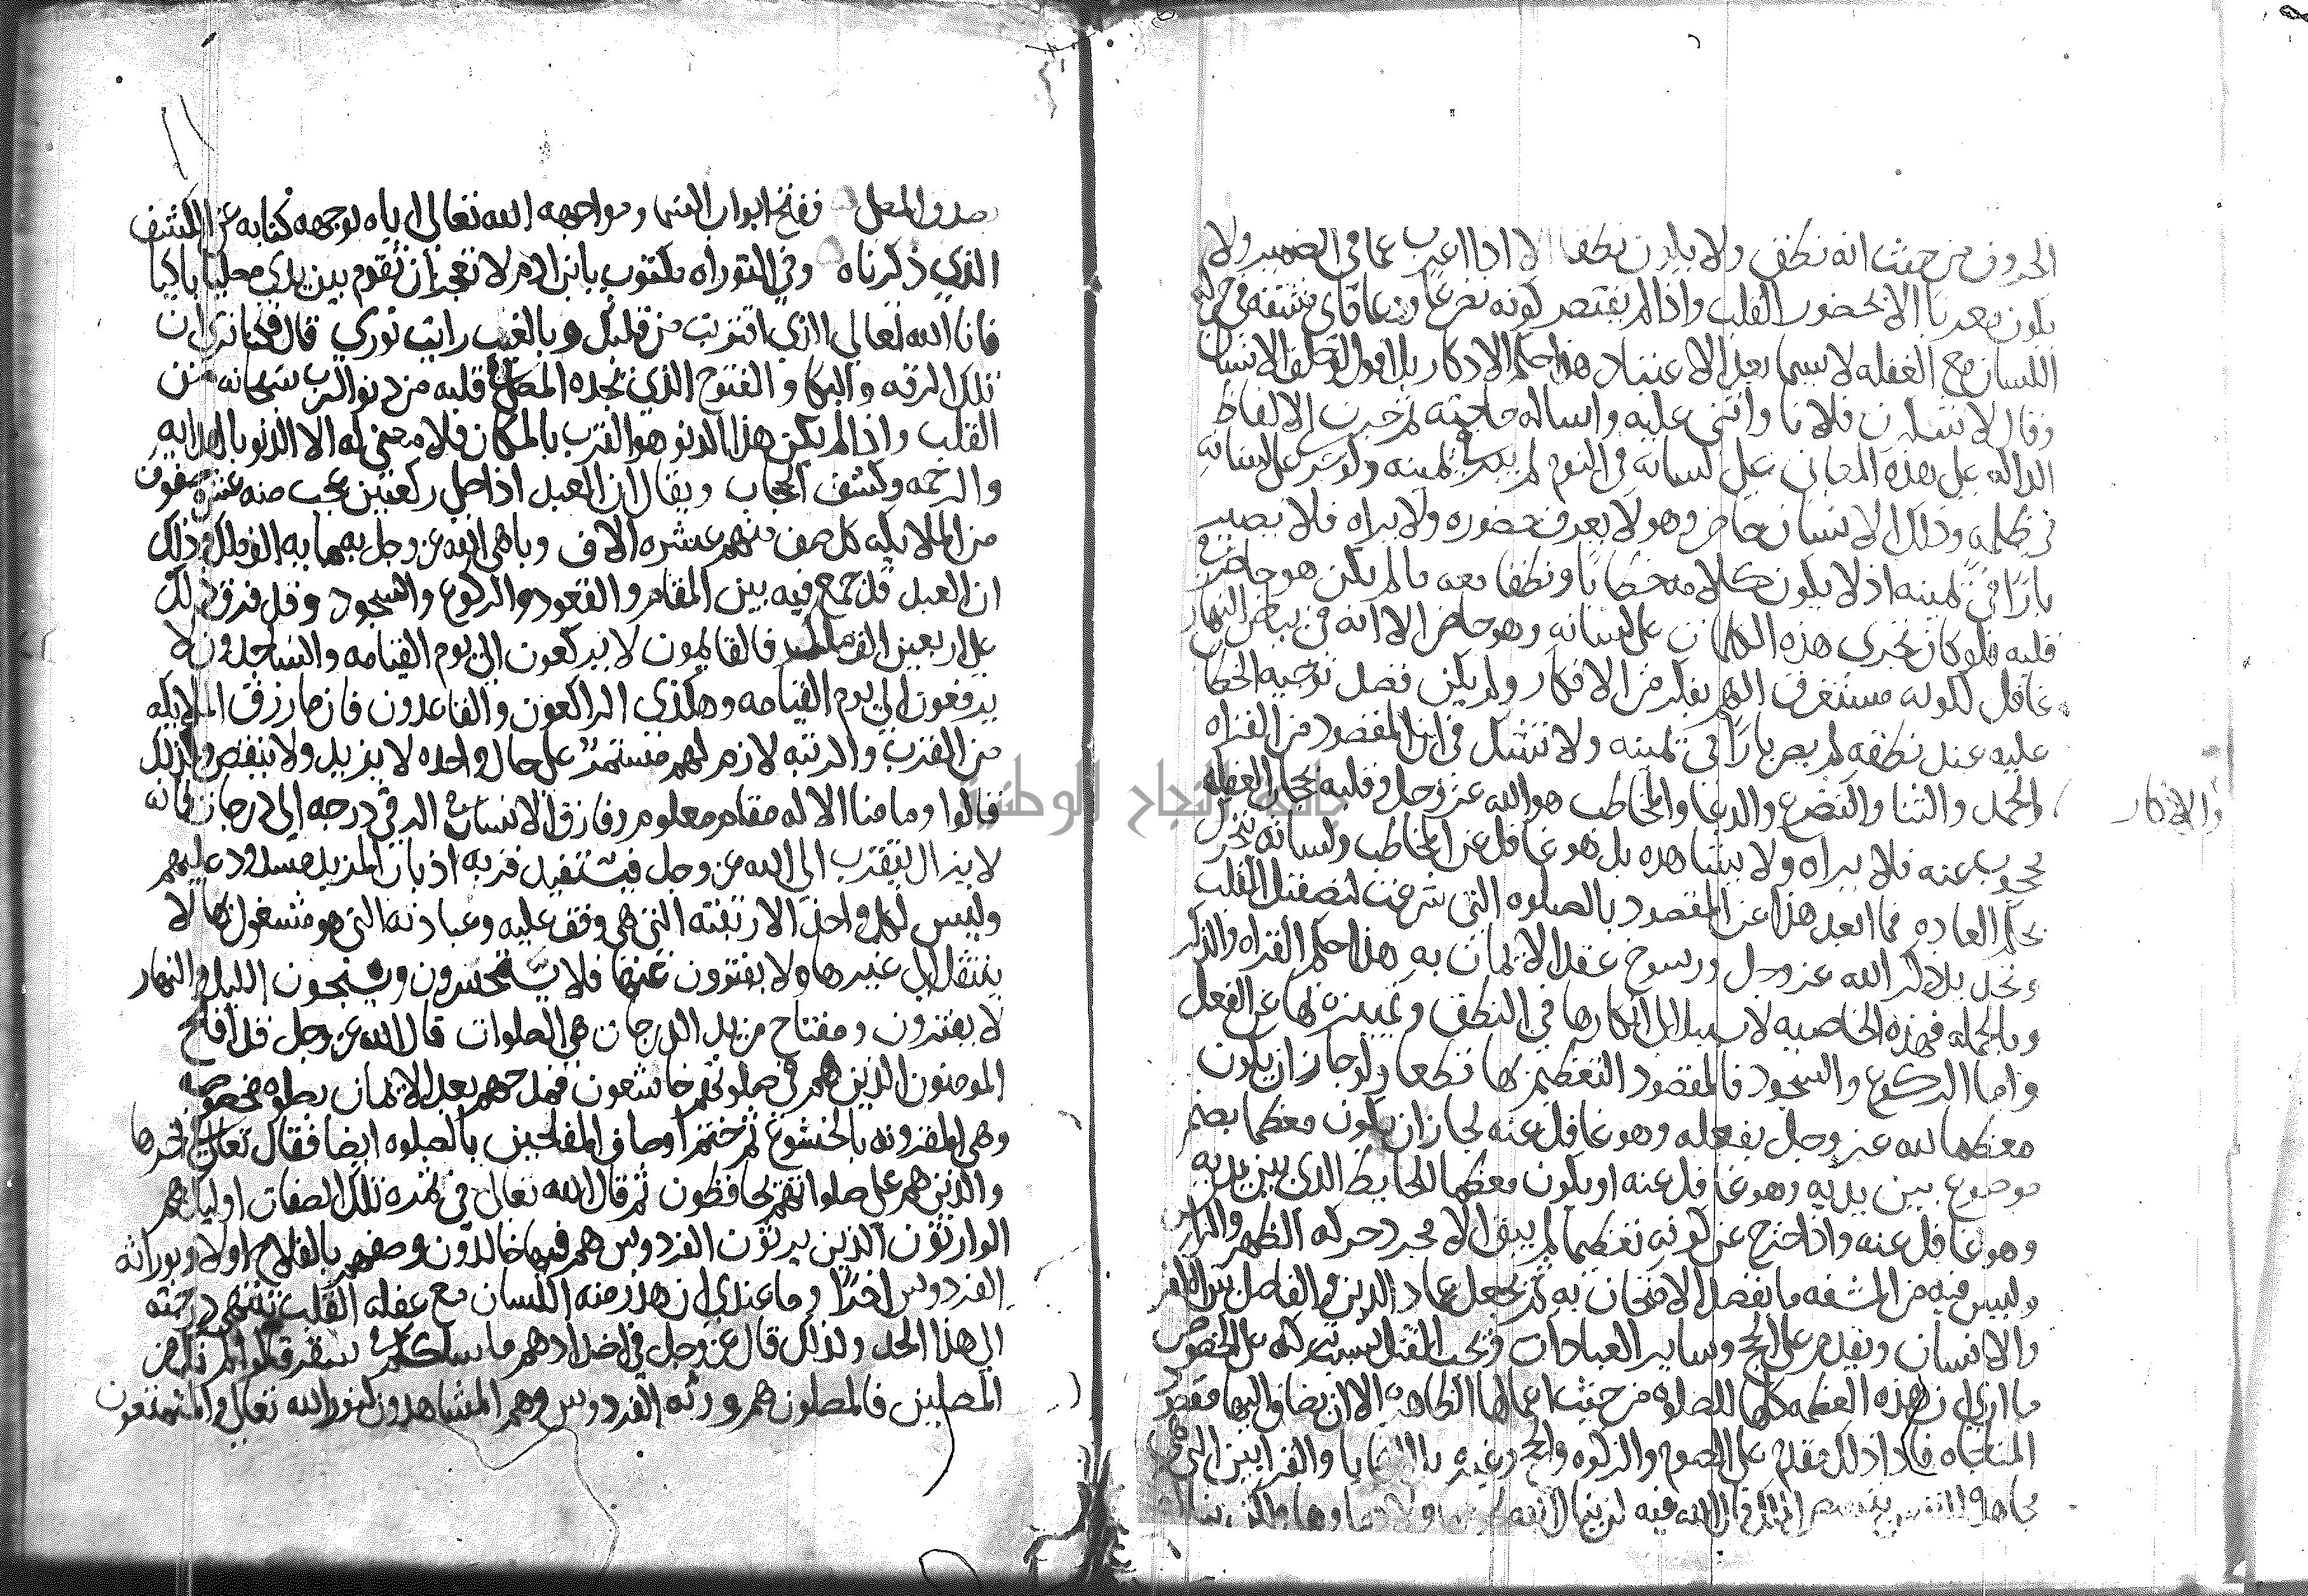 الحروف من حيث انه نطق ولا يكون نطقا الا اذا اعرب عما في الضمير ولا
يكون معربا الا بحضور القلب واذا لم يقتصر كونه تضرعا ودعا فاي مشقه في حركه
اللسان مع الغفله لا سيما بعد الاعتياد هذا حكم الاذكار بل اقول لو حلف الانسان
وقال لاشكرن فلانا واثني عليه واساله حاجته ثم جرت الالفاظ
الداله على هذه المعاني على لسانه في النوم لم يبر في يمينه ولو جرت على لسانه
في ظلمه وذلك الانسان حاضر وهو لا يعرف حضوره ولا يراه فلا يصير
بارا في يمينه اذ لا يكون كلامه خطابا ونطقا معه ما لم يكن هو حاضرا في
قلبه فلو كان تجري هذه الكلمات على لسانه وهو حاضر الا انه في بياض النهار
غافل لكونه مستغرق الهم بفكر من الافكار ولم يكن قصد توجيه الخطاب
عليه عند نطقه لم يصر بارا في يمينه ولا تشك في ان المقصود من القراه
والحمد والثنا والتضرع والدعا والمخاطب هو الله عز وجل وقلبه بحجاب الغفله
والاذكار
محجوب عنه فلا يراه ولا يشاهده بل هو غافل عن المخاطب ولسانه يتحرك
بحكم العاده فما ابعد هذا عن المقصود بالصلوه التي شرعت لتصقيل القلب
وتجديد ذكر الله عز وجل ورسوخ عقد الايمان به هذا حكم القراه والذكر
وبالجمله فهذه الخاصيه لا سبيل الى انكارها في النطق وتمييزه بها عن الفعل
واما الركوع والسجود فالمقصود التعظيم بها قطعا ولو جاز ان يكون
معظما لله عز وجل بفعله وهو غافل عنه لجاز ان يكون معظما بصنم
موضوع بين يديه وهو غافل عنه او يكون معظما للحايط الذي بين يديه
وهو غافل عنه واذا خرج عن كونه تعظيما لم يبق الا مجرد حركه الظهر والراس
وليس فيه من المشقه ما يقصد الامتحان به ثم يجعل عماد الدين والفاصل بين الكفر
والانسان ويقدم على الحج وساير العبادات ويجب القتل بسبب تركه على الخصوص
ما ارى ان هذه العظمه كلها للصلوه من حيث اعمالها الظاهره الا ان يضاف اليها مقصود
المناجاه فاذ ذلك مقدم على الصوم والزكوه والحج وغيره بل الضحايا والقرابين التي هي
مجاهده النفس بتنقيص المال قال الله فيه لن ينال الله لحومها ولا دماوها ولكن يناله
صدق المصلي ففتح ابواب السما ومواجهه الله تعالى اياه بوجهه كنايه عن الكشف
الذي ذكرناه وفي التوراه مكتوب يا بن ادم لا تعجز ان تقوم بين يدي مصليا باكيا
فانا الله تعالي الذي اقتربت من قلبك وبالغيب رايت نوري قال فكنا نرى ان
تلك الرقه والبكا والفتوح الذي يجده المصلي في قلبه من دنو الرب سبحانه من
القلب واذا لم يكن هذا الدنو هو القرب بالمكان فلا معنى له الا الدنو بالهدايه
والرحمه وكشف الحجاب ويقال ان العبد اذا صلى ركعتين عجب منه عشره صفوف
من الملايكه كل صف منهم عشره الاف وباهى الله عز وجل به مايه الف ملك وذلك
ان العبد قد جمع فيه بين القيام والقعود والركوع والسجود وقد فرق ذلك
على اربعين الف ملك فالقايمون لا يركعون الى يوم القيامه والساجدون لا
يرفعون الي يوم القيامه وهكذى الراكعون والقاعدون فان ما رزق الملايكه
من القرب والرتبه لازم لهم مستمر على حال واحده لا يزيد ولا ينقص ولذلك
قالوا وما منا الا له مقام معلوم وفارق الانسان في الترقي درجه الي درجات فانه
لا يزال يتقرب الي الله عز وجل فيستفيد قربه اذ باب المزيد مسدود عليهم
وليس لكل واحد الا رتبته التي هي وقف عليه وعبادته التي هو مشغول بها لا
ينتقل الى غيرها ولا يفترون عنها فلا يستحسرون ويسبحون الليل والنهار
لا يفترون ومفتاح مزيد الدرجات هي الصلوات قال الله عز وجل قد افلح
المومنون الذين هم في صلوتهم خاشعون فمدحهم بعد الايمان بصلوه مخصوصه
وهي المقرونه بالخشوع ثم ختم اوصاف المفلحين بالصلوه ايضا فقال تعالى في اخرها
والذين هم على صلواتهم يحافظون ثم قال الله تعالى في ثمره تلك الصفات اوليك هم
الوارثون الذين يرثون الفردوس هم فيها خالدون وصفهم بالفلاح اولا وبوراثه
الفردوس اخرا وما عندي ان هذرمه اللسان مع غفله القلب تنتهي درجته
الى هذا الحد ولذلك قال عز وجل في اضدادهم ما سلككم في سقر قالوا لم نك من
المصلين فالمصلون هم ورثه الفردوس وهم المشاهدون لنور الله تعالى والمتمتعون
جامعة النجاح الوطنية